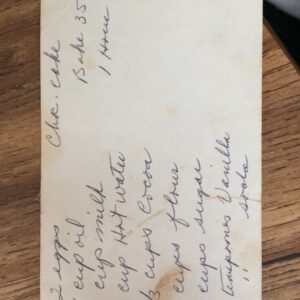 Chk. cake
Bake 35
1 Hour
2 eggs
cup oil
cup milk
cup Hot water
cups Cocoa
cups flour
cups sugar
Teaspoons Vanilla
" soda